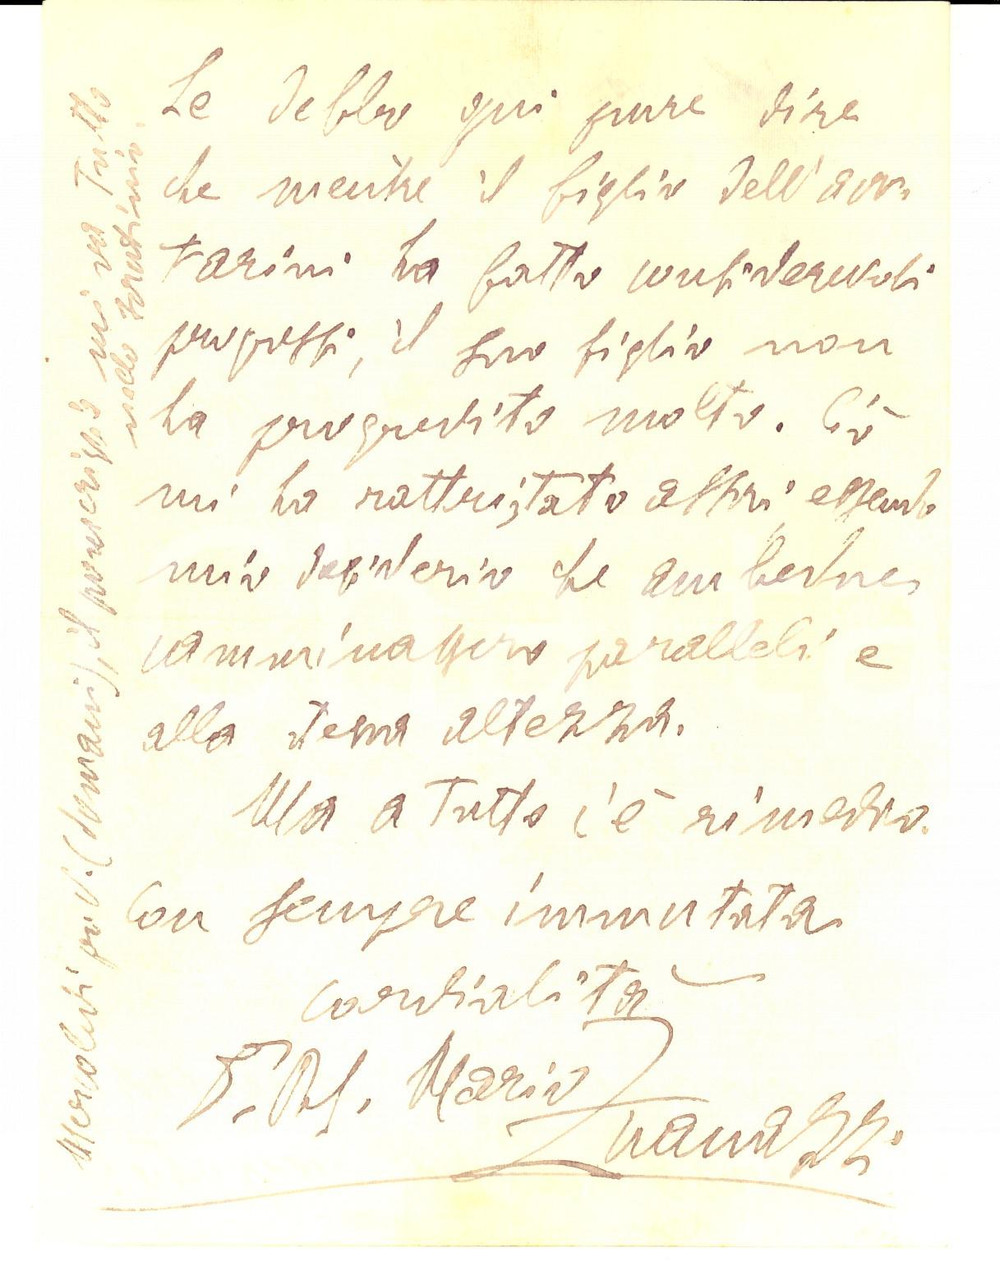 Le debbo qui pure dire
che mentre il figlio dell'avv.
Tarini ha fatto considerevoli
progressi, il suo figlio non
ha progredito molto. Ciò
mi ha rattristato assai essendo
mio desiderio che ambedue
camminassero paralleli e
alla stessa altezza.
Ma a tutto c'è rimedio.
Con sempre immutata
cordialità
Mario
Mercoledì (domani), il pomeriggio mi va tutto